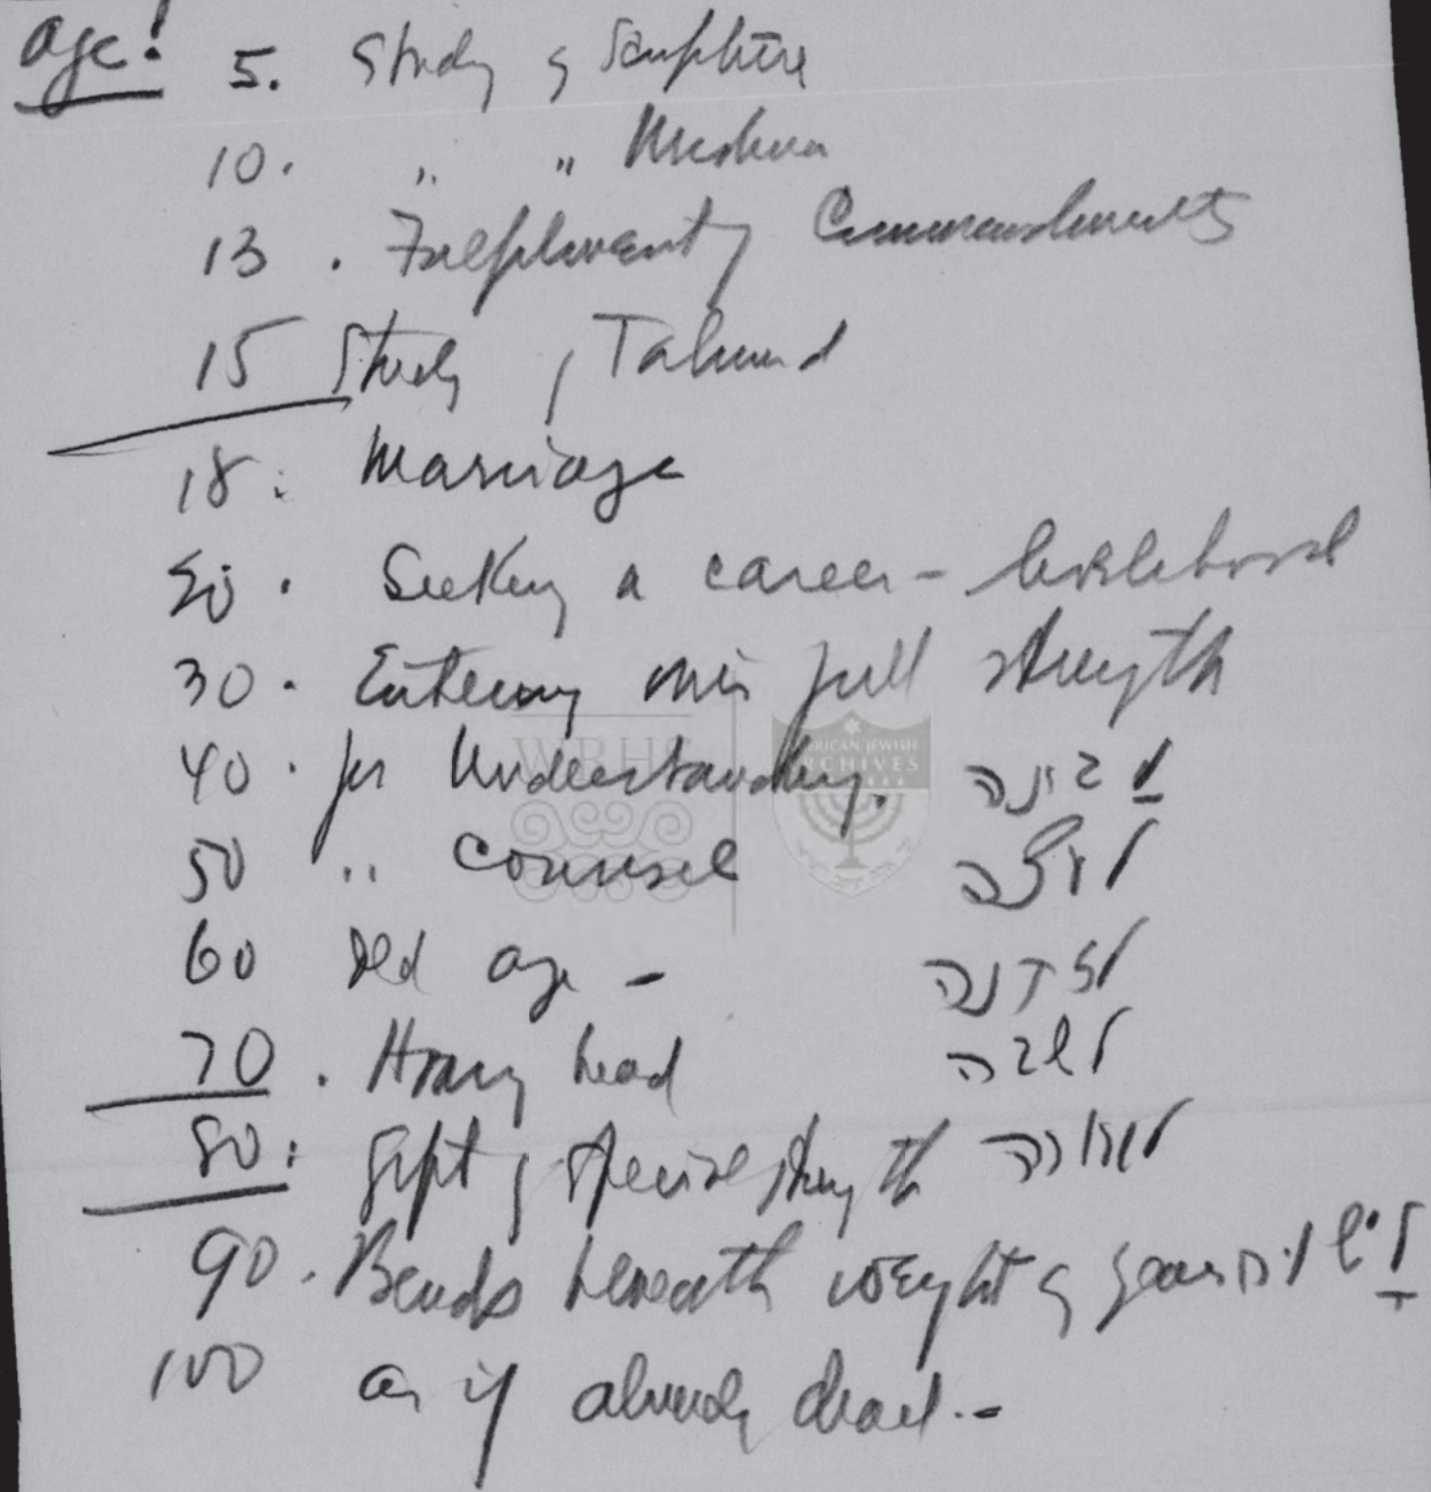 age!  5. Study of Scripture
10. " " Mishna
13. Fulfilment of Commandments
15 Study of Talmud
18: Marriage
20. Seeking a career - livelihood
30. Entering one's full strength
40. for Understanding. לבינה
50 " counsel לעצה
60 Old age - לזקנה
70. Hoary head לשיבה
80: Gift of special strength לגבורה
90. Bends beneath weight of years
100 as if already dead.-
WRHS
AMERICAN JEWISH
ARCHIVES